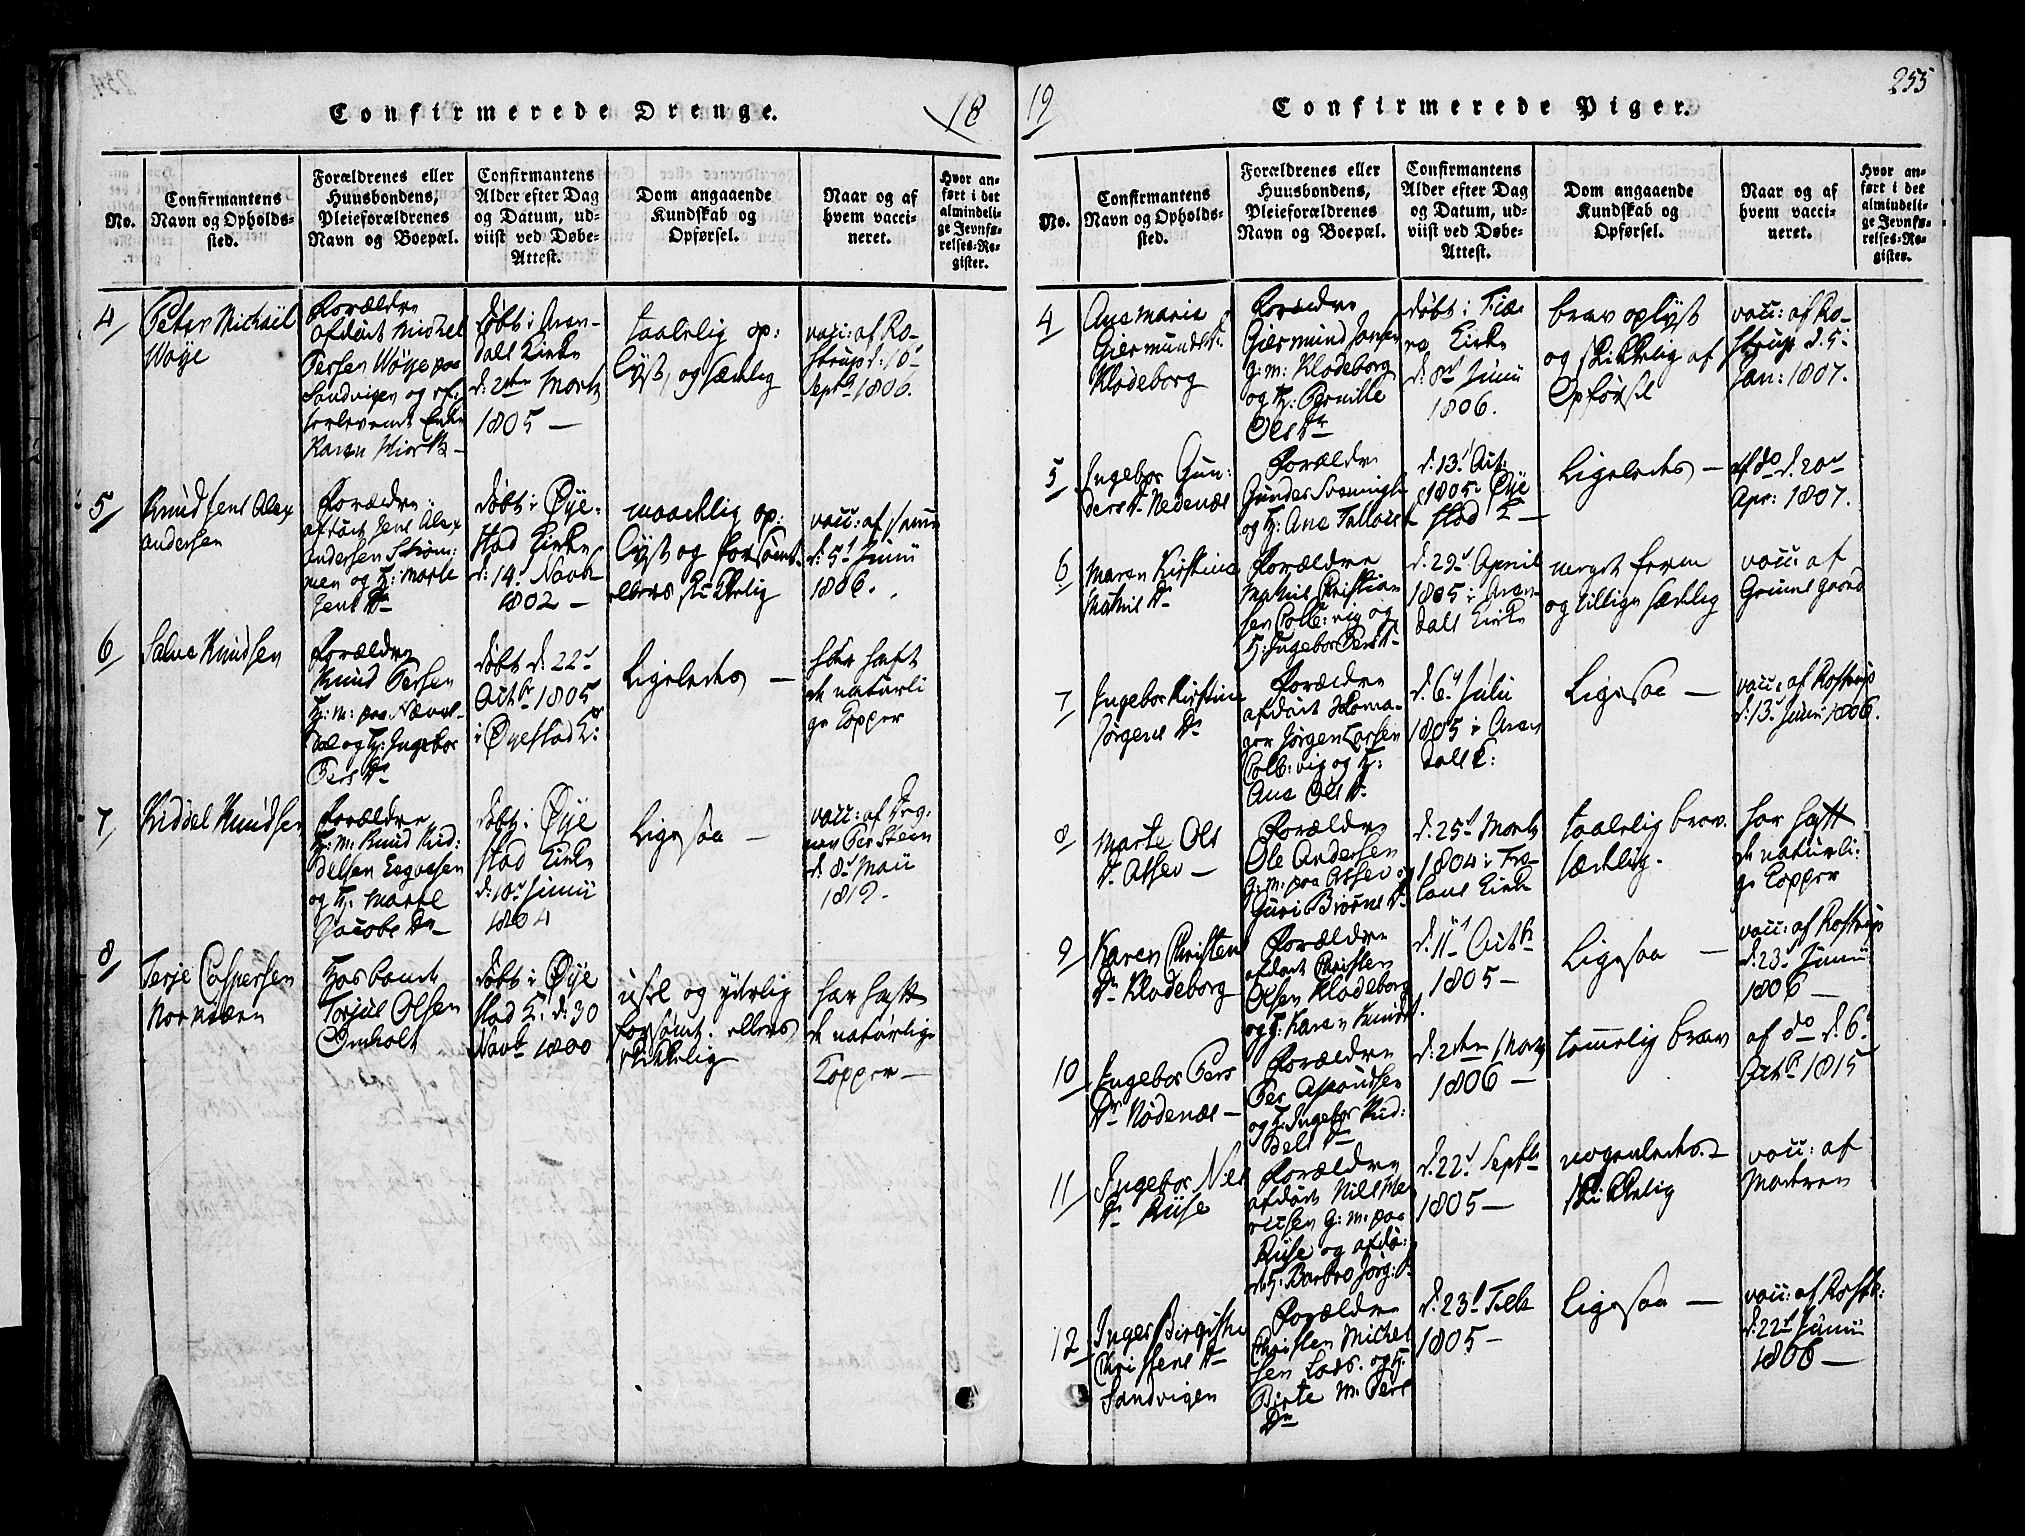 Confirmerede Drenge.
18
No.
Confirmantens
Navn og Opholds-
sted.
Forældrenes eller
Huusbondens,
Pleieforældrenes
Navn og Boepæl.
Confirmantens
Alder efter Dag
og Datum, ud-
viist ved Døbe-
Attest.
Dom angaaende
Kundskab og
Opførsel.
Naar og af
hvem vacci-
neret.
Hvor an-
ført i det
almindeli-
ge Jevnfø-
relses-Re-
gister.
4
Peter Michael
Wøye
Forældre
afdøde Michel
Persen Wøye paa
Sandvigen og ef-
terlevende Enke
Karen
Døbt i Aren-
dals Kirke
d: 2den Marts
1805 —
taalelig op:
lyst, og sædelig
vacc: af Ro-
strup d: 10
Septb 1806.
5
Knud Jens Alex
andersen
Forældre
afdøde Jens Alex
andersen Strøm:
men og H: Marte
Jens Dr
Døbt i Øye-
stad Kirke
d: 14 Novb
1802 —
maadelig op:
lyst og forsømt
ellers skikkelig
vacc: af samme
d: 5te Junii
1806.
6
Salve Knudsen
Forældre
Knud Persen
og H: Ingebor
Pers Dr
Døbt d: 22d
Octbr 1805
i Øyestad K:
Ligeledes —
har haft
de naturli
ge Kopper
7
Kiddel Knudsen
Forældre
H: M: Knud Kid-
delsen
og H: Marte
Jacobs Dr
Døbt i Øye
stad Kirke
d: 10d Junii
1804
Ligesaa —
vacc: af
Per Steen
d: 8d Maii
1819.
8
Terje Caspersen
Hosbonde
Torjus Olsen
Omholt
Døbt i Øye
stad K: d: 30
Novb 1800
usel og yderlig
forsømt: ellers
skikkelig
har haft
de naturlige
Kopper —
19
Confirmerede Piger.
255
No.
Confirmantens
Navn og Opholds-
sted.
Forældrenes eller
Huusbondens,
Pleieforældrenes
Navn og Boepæl.
Confirmantens
Alder efter Dag
og Datum, ud-
viist ved Døbe-
Attest.
Dom angaaende
Kundskab og
Opførsel.
Naar og af
hvem vacci-
neret.
Hvor an-
ført i det
almindeli-
ge Jevnfø-
relses-Re-
gister.
4
Ane Maria
Giermunds D.
Klodeborg
Forældre
Giermund Jansen
G: M: Klodeborg
og H: Pernille
Ols Dr
Døbt i Fiæ
re Kirke
d: 8d Junii
1806.
brav oplyst
og skikkelig af
Opførsel
vacc: af Ro-
strup d. 5
Jan: 1807.
5
Ingebor Gun:
ders D. Nedenæs
Forældre
Gunder
og H: Ane
d: 13d Oct:
1805 i Øye
stad K —
Ligeledes —
af do d. 20d
Apr: 1807.
6
Maren Kirstine
Forældre
Christian
sen Colb: vig og
H: Ingebor Pers Dr
d. 29d April
1805 i Aren
dals Kirke
meget ferm
og tillige sædelig
vacc: af
Grumsgaard
7
Ingebor Kirstine
Jørgens Dr
Forældre
afdøde Skoma-
ger Jørgen Larsen
Colb: vig og H:
Ane Ols Dr
d. 6d Julii
1805 i Aren
dals K:
Ligesaa —
vacc: af Rostrup
d: 13d Junii 1806.
8
Marte Ols
D. Assev —
Forældre
Ole Andersen
G: M: paa Assev og
Guri Biørns D.
d. 25d Marts
1804 i Fro-
lans Kirke
taalelig brav.
sædelig.
har haft
de naturli-
ge Kopper
9
Karen Christens
Dr Klodeborg
Forældre
afdøde Christen
Olsen Klodeborg
og H: Karen Knuds
d: 11d Octb
1805 —
Ligesaa —
vacc: af Rostrup
d: 23d Junii
1806 —
10
Ingebor Pers
Dr Nedenæs —
Forældre
Per
og H: Ingebor Kid:
dels Dr
d: 2den Marts
1806 —
temmelig brav
af do d. 6d
Octb 1815
11
Ingebor Nels
Dr Ruse
Forældre
afdøde Niels
G: M: paa
Ruse og afdø:
de H: Barbro Jørg: D.
d. 22d Septb
1805 —
nogenledes —
skikkelig
vacc: af
12
Inger Birgithe
Christens Dr
Sandvigen
Forældre
Christen Michel
sen Lods. og H:
Birte M. Pers
Dr
d: 23d Feb
1805 —
Ligesaa —
vacc: af Rostr:
d. 22d Junii
1806 —